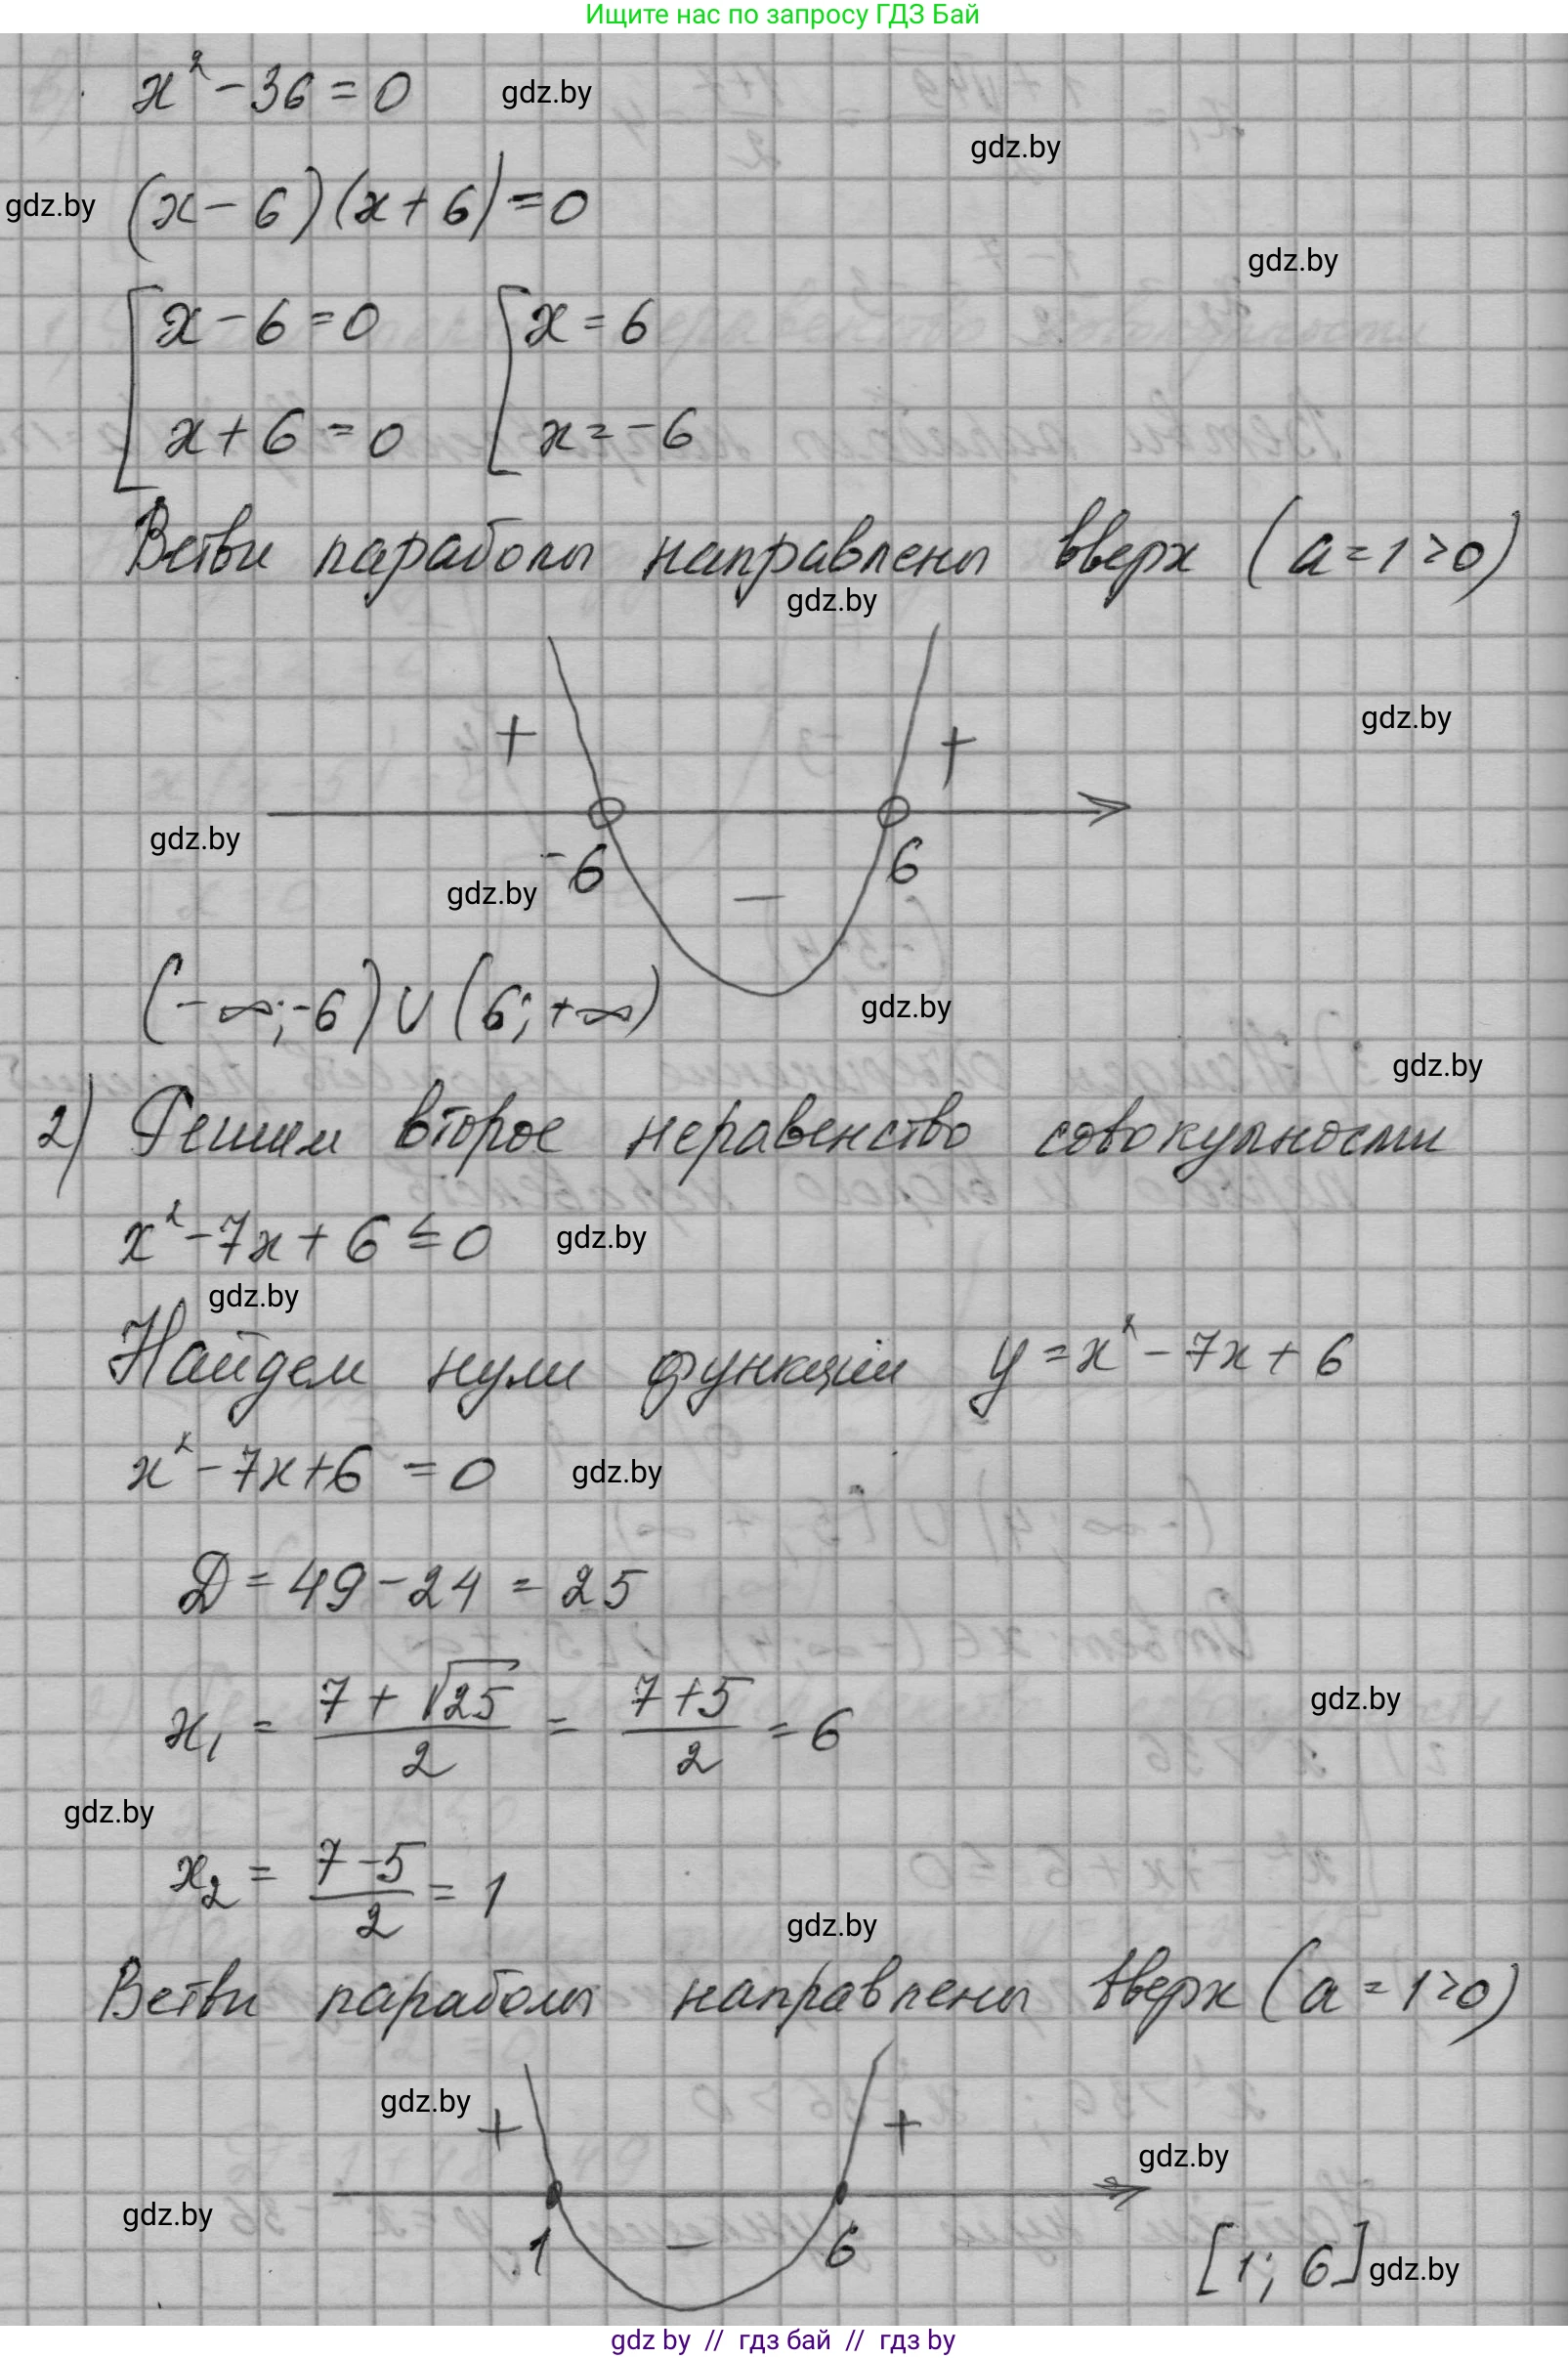 Ищите нас по запросу ГДЗ Бай
x² - 36 = 0 gdz.by
gdz.by
gdz.by (x - 6)(x + 6) = 0
gdz.by
[ x - 6 = 0 [ x = 6
x + 6 = 0 x = -6
Ветви параболы направлены вверх (a = 1 > 0)
gdz.by
gdz.by
+ +
gdz.by
-6 6
gdz.by
-
(-∞; -6) ∪ (6; +∞) gdz.by
gdz.by
2) Решим второе неравенство совокупности
x² - 7x + 6 ≤ 0 gdz.by
gdz.by
Найдем нули функции y = x² - 7x + 6
x² - 7x + 6 = 0 gdz.by
Д = 49 - 24 = 25
x₁ = (7 + √25)/2 = (7 + 5)/2 = 6 gdz.by
gdz.by
x₂ = (7 - 5)/2 = 1
gdz.by
Ветви параболы направлены вверх (a = 1 > 0)
gdz.by
+ +
gdz.by
gdz.by
1 - 6 [1; 6] gdz.by
gdz by // гдз бай // гдз by